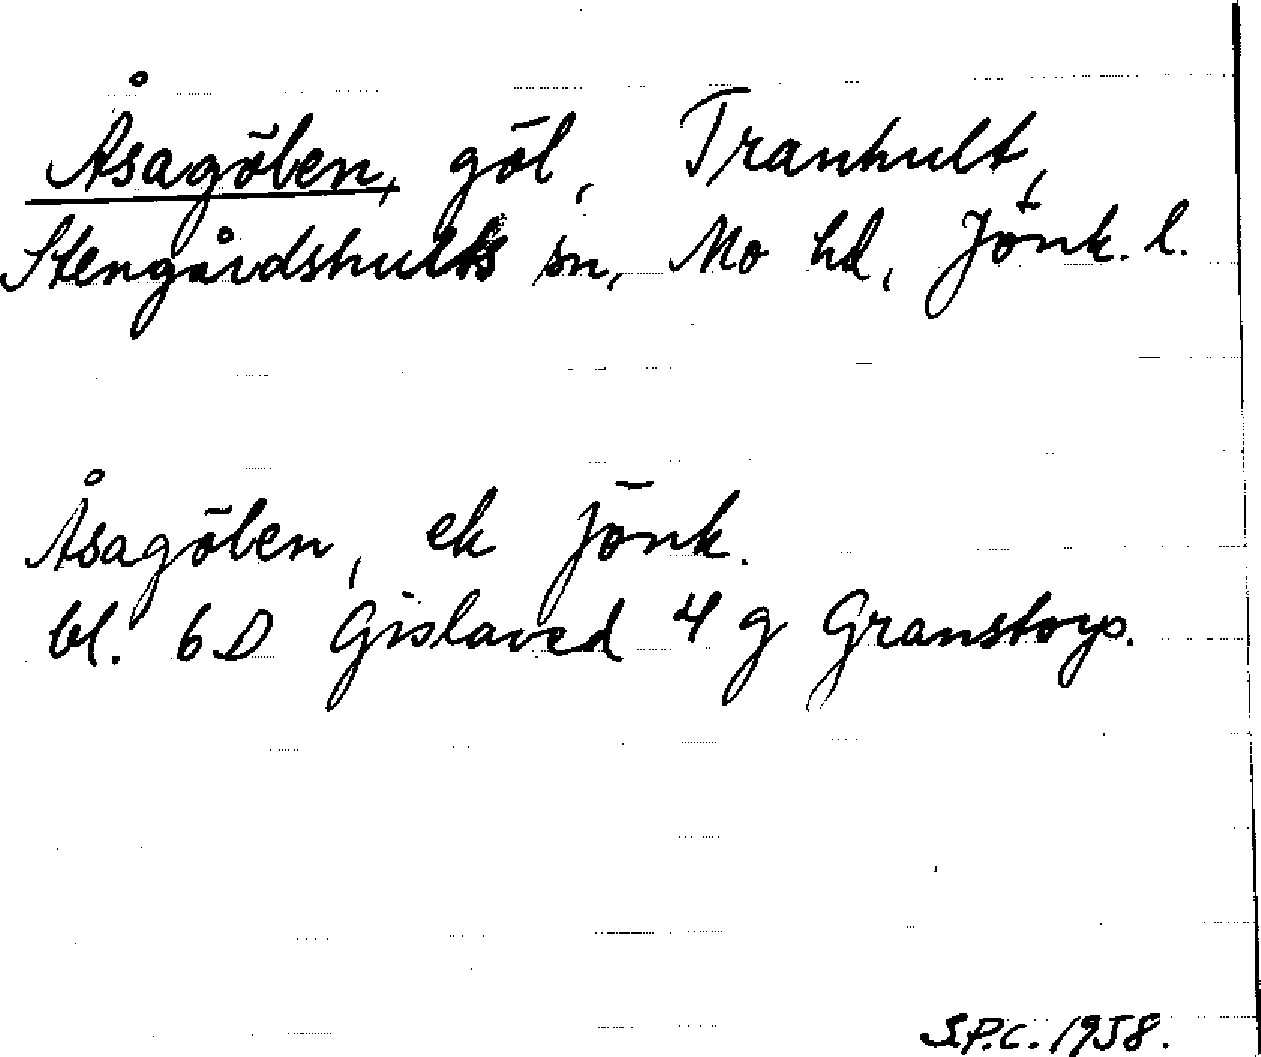 Åsagölen, göl, Tranhult,
Stengårdshults sn, Mo hd, Jönk. l.
Åsagölen, ek Jönk.
bl. 6D Gislaved 4 g Granstorp.
S.P.C. 1958.